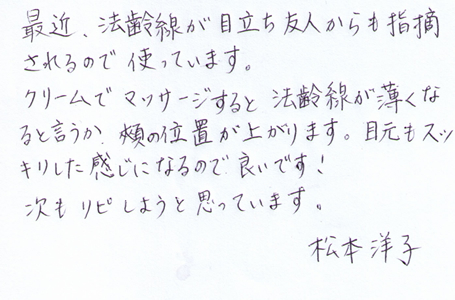 最近、法齢線が目立ち友人からも指摘
されるので使っています。
クリームでマッサージすると法齢線が薄くな
ると言うか頬の位置が上がります。目元もスッ
キリした感じになるので良いです!
次もリピしようと思っています。
松本洋子